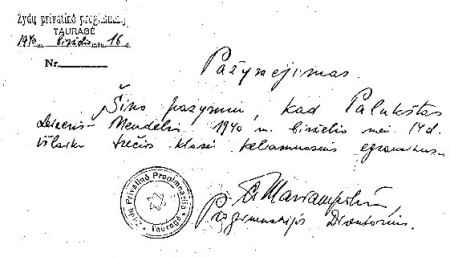 Žydų privatinė progimnazija
TAURAGĖ
1940 m. birželio mėn. 16 d.
Nr.
Pažymėjimas.
Šiuo pažymiu, kad Palukštas
Leizeris-Mendelis 1940 m. birželio mėn. 14 d.
išlaikė trečios klasės keliamuosius egzaminus.
Žydų Privatinė Progimnazija
Tauragė
Progimnazijos Direktorius.